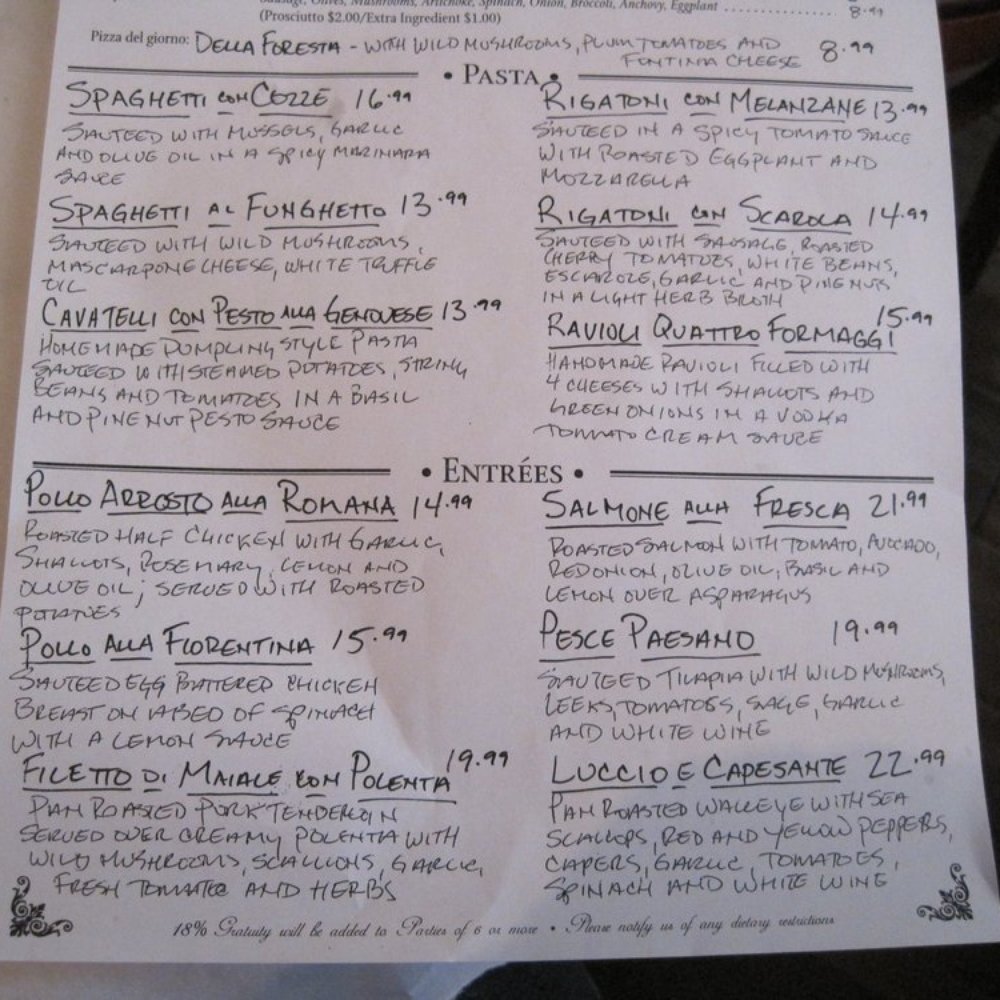 Sausage, Olives, Mushrooms, Artichoke, Spinach, Onion, Broccoli, Anchovy, Eggplant .................. 8.99
(Prosciutto $2.00/Extra Ingredient $1.00)
Pizza del giorno: DELLA FORESTA - WITH WILD MUSHROOMS, PLUM TOMATOES AND
FONTINA CHEESE 8.99
• PASTA •
SPAGHETTI CON COZZE 16.99
SAUTEED WITH MUSSELS, GARLIC
AND OLIVE OIL IN A SPICY MARINARA
SAUCE
SPAGHETTI AL FUNGHETTO 13.99
SAUTEED WITH WILD MUSHROOMS,
MASCARPONE CHEESE, WHITE TRUFFLE
OIL
CAVATELLI CON PESTO ALLA GENOVESE 13.99
HOMEMADE DUMPLING STYLE PASTA
SAUTEED WITH STEAMED POTATOES, STRING
BEANS AND TOMATOES IN A BASIL
AND PINE NUT PESTO SAUCE
RIGATONI CON MELANZANE 13.99
SAUTEED IN A SPICY TOMATO SAUCE
WITH ROASTED EGGPLANT AND
MOZZARELLA
RIGATONI CON SCAROLA 14.99
SAUTEED WITH SAUSAGE, ROASTED
CHERRY TOMATOES, WHITE BEANS,
ESCAROLE, GARLIC AND PINE NUTS
IN A LIGHT HERB BROTH
RAVIOLI QUATTRO FORMAGGI 15.99
HANDMADE RAVIOLI FILLED WITH
4 CHEESES WITH SHALLOTS AND
GREEN ONIONS IN A VODKA
TOMATO CREAM SAUCE
• ENTRÉES •
POLLO ARROSTO ALLA ROMANA 14.99
ROASTED HALF CHICKEN WITH GARLIC,
SHALLOTS, ROSEMARY, LEMON AND
OLIVE OIL; SERVED WITH ROASTED
POTATOES
POLLO ALLA FIORENTINA 15.99
SAUTEED EGG BATTERED CHICKEN
BREAST ON A BED OF SPINACH
WITH A LEMON SAUCE
FILETTO DI MAIALE CON POLENTA 19.99
PAN ROASTED PORK TENDERLOIN
SERVED OVER CREAMY POLENTA WITH
WILD MUSHROOMS, SCALLIONS, GARLIC,
FRESH TOMATOES AND HERBS
SALMONE ALLA FRESCA 21.99
ROASTED SALMON WITH TOMATO, AVOCADO,
RED ONION, OLIVE OIL, BASIL AND
LEMON OVER ASPARAGUS
PESCE PAESANO 19.99
SAUTEED TILAPIA WITH WILD MUSHROOMS,
LEEKS, TOMATOES, SAGE, GARLIC
AND WHITE WINE
LUCCIO E CAPESANTE 22.99
PAN ROASTED WALLEYE WITH SEA
SCALLOPS, RED AND YELLOW PEPPERS,
CAPERS, GARLIC, TOMATOES,
SPINACH AND WHITE WINE
18% Gratuity will be added to Parties of 6 or more • Please notify us of any dietary restrictions